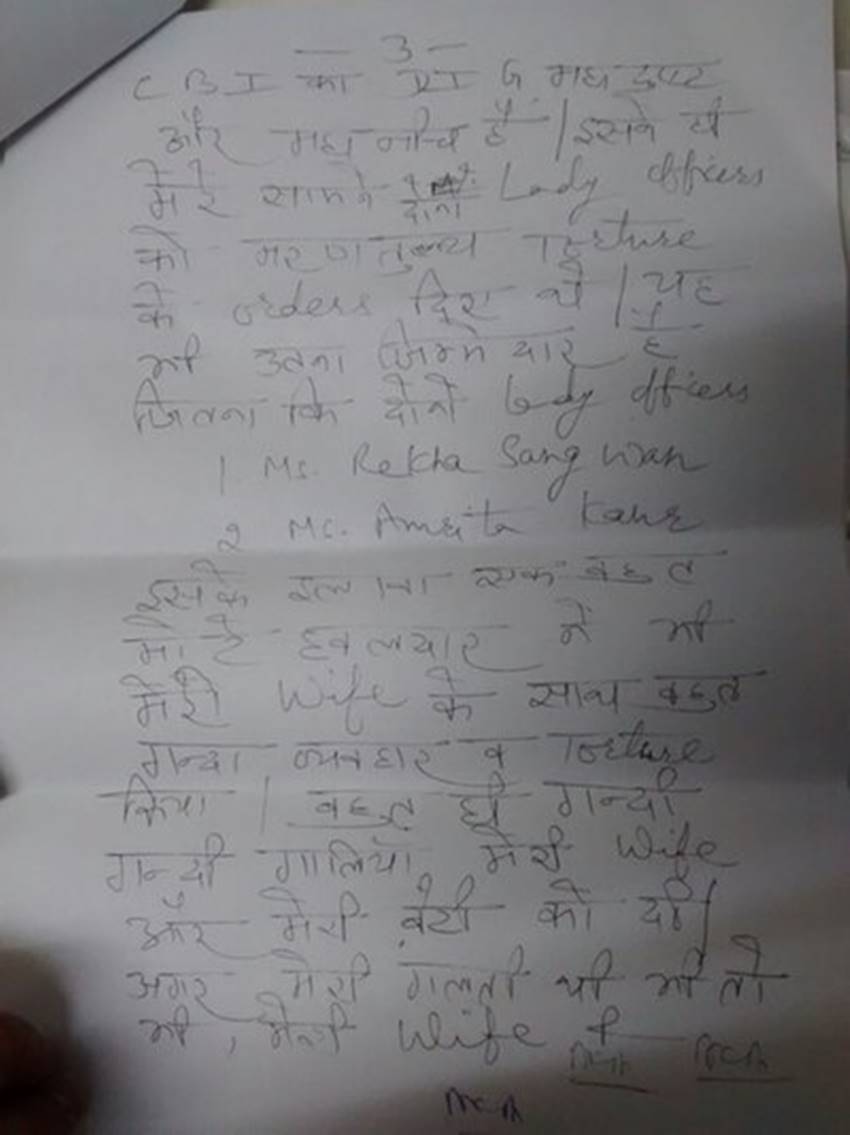 — 3 —
CBI का DIG महा दुष्ट
और महा नीच है | इसने ही
मेरे सामने दोनों Lady officers
को मरणतुल्य Torture
के orders दिए थे | यह
भी उतना जिम्मेदार है
जितना कि दोनों Lady officers
1 Ms. Rekha Sangwan
2 Ms. Amrita Kaur
इसके इलावा एक बहुत
मोटे हवलदार ने भी
मेरी Wife के साथ बहुत
गन्दा व्यवहार व Torture
किया | बहुत ही गन्दी
गन्दी गालियाँ मेरी Wife
और मेरी बेटी को दीं |
अगर मेरी गलती थी भी तो
भी, मेरी Wife व